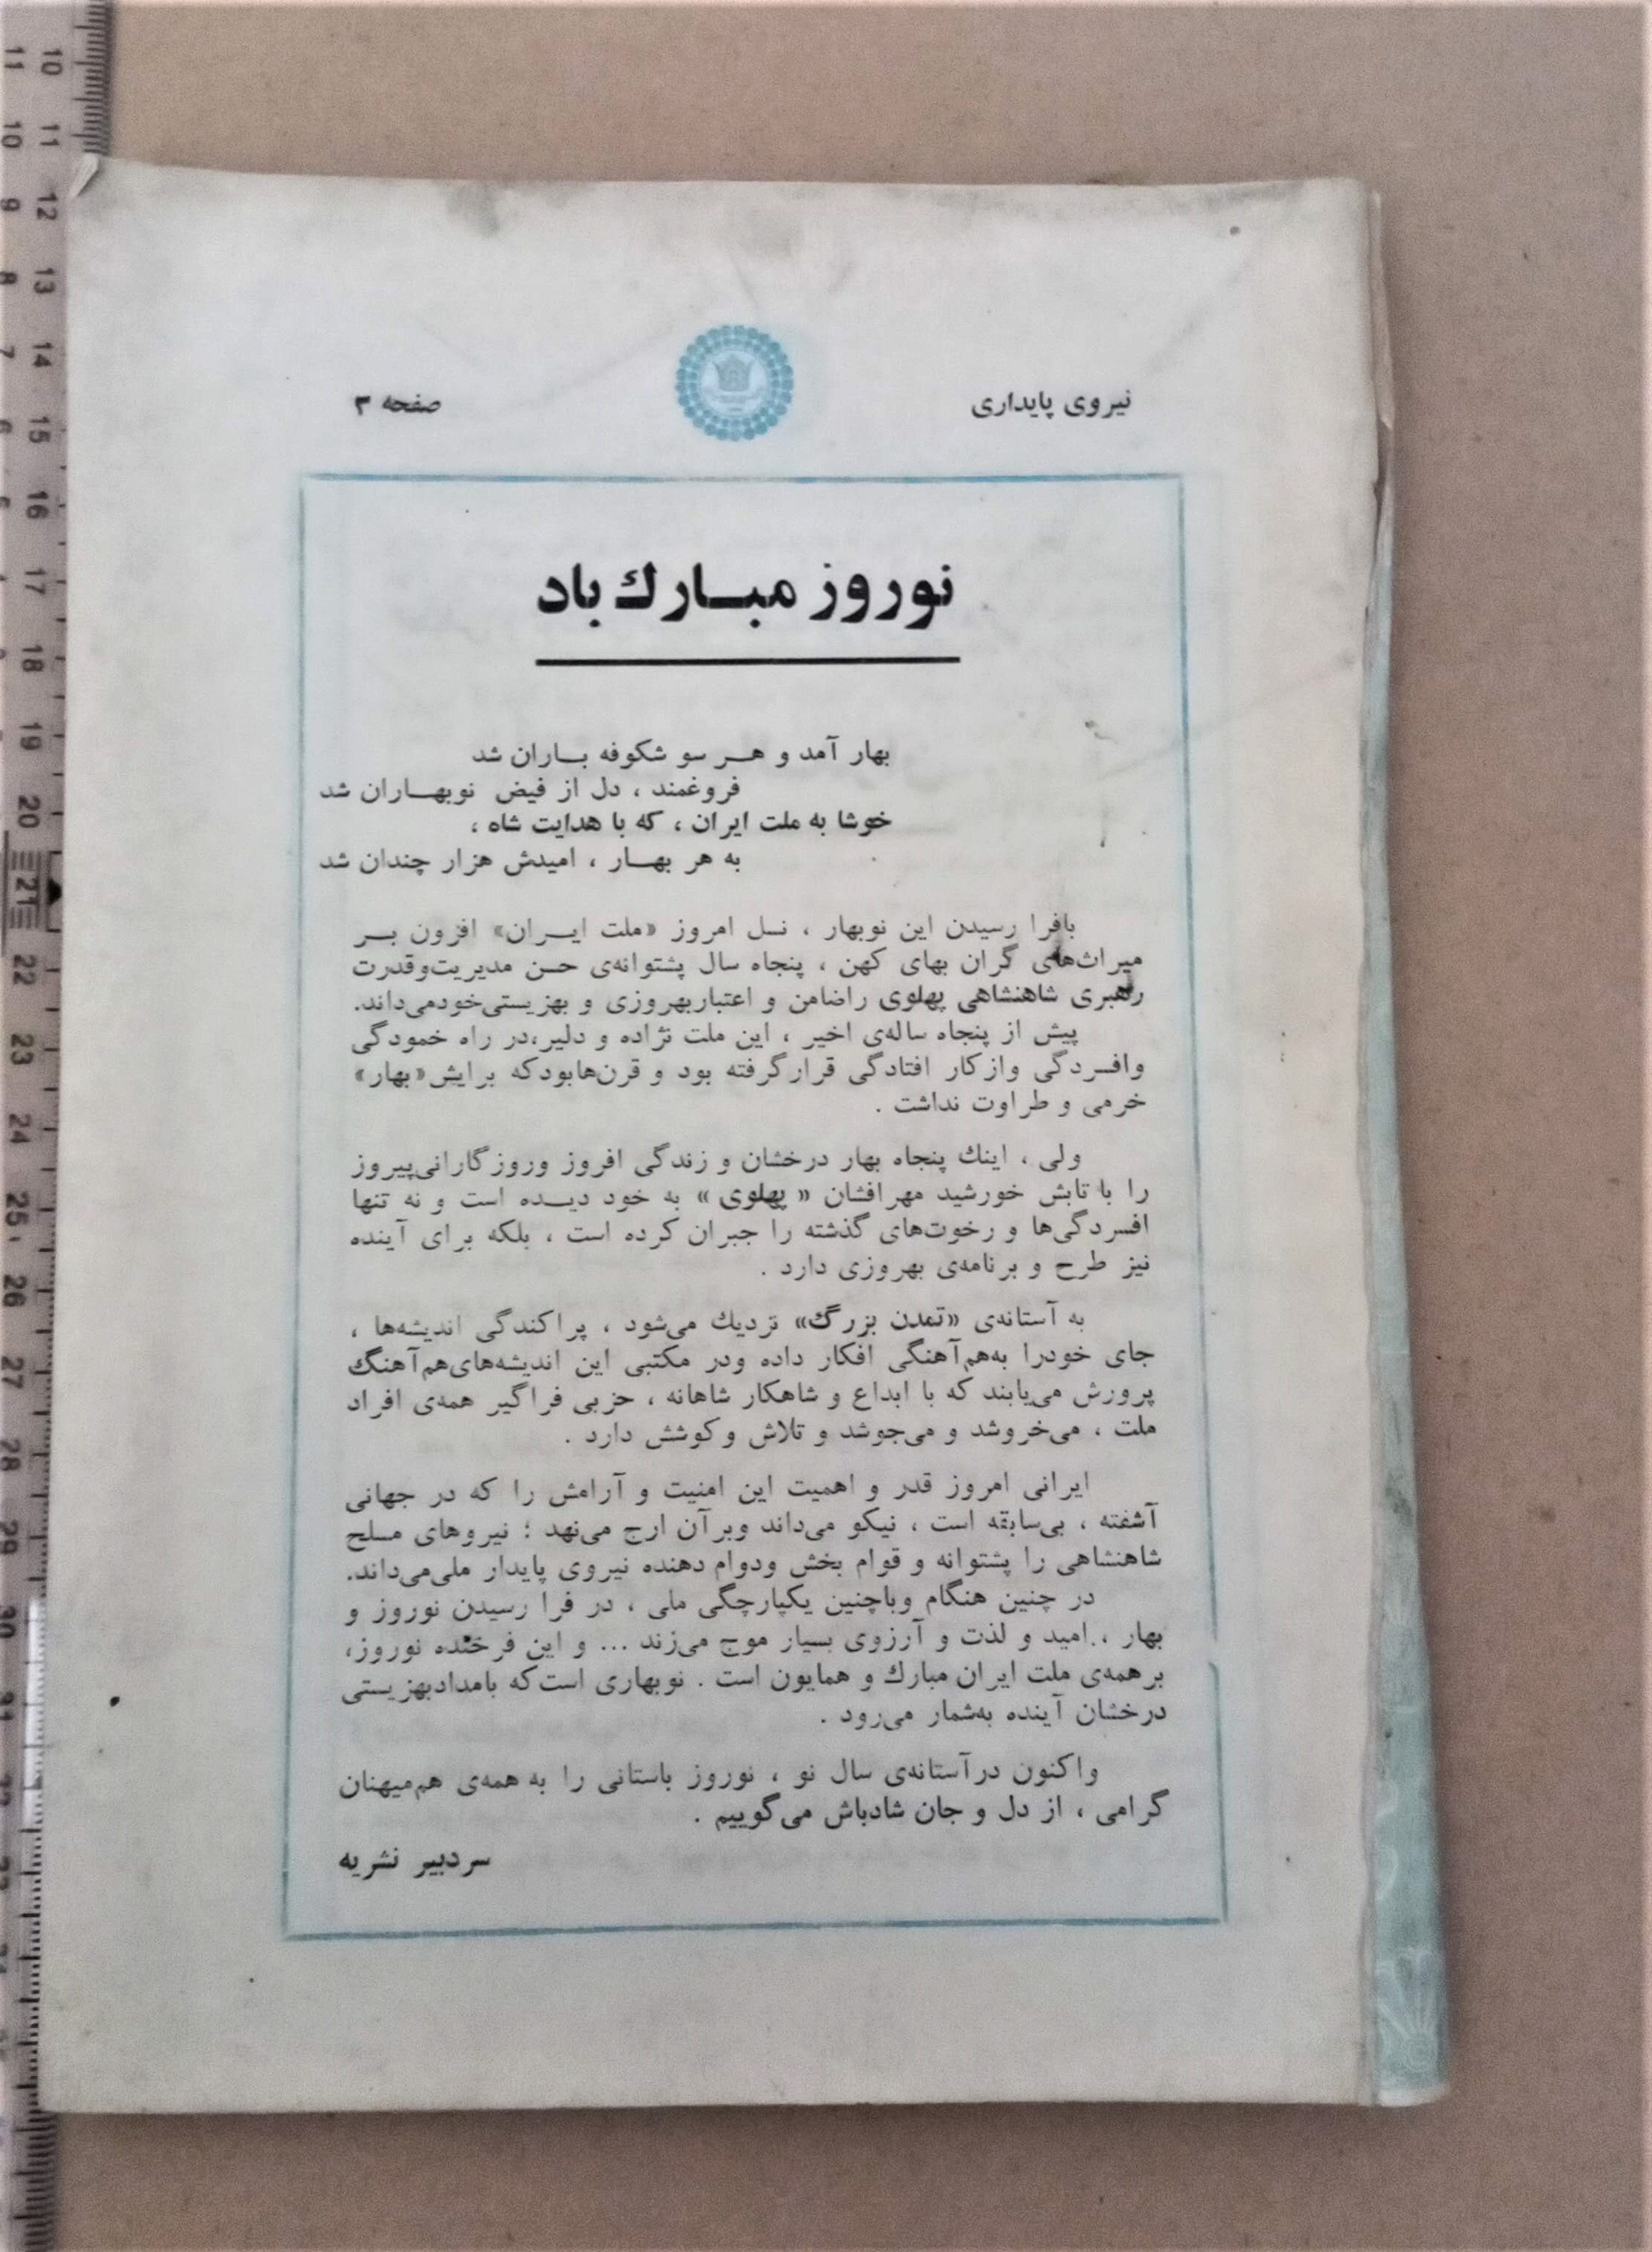 نیروی پایداری
صفحه ۳
نوروز مبارك باد
بهار آمد و هر سو شکوفه باران شد
فروغمند ، دل از فیض نوبهاران شد
خوشا به ملت ایران ، که با هدایت شاه ،
به هر بهار ، امیدش هزار چندان شد
بافرا رسیدن این نوبهار ، نسل امروز «ملت ایران» افزون بر
میراث‌های گران بهای کهن ، پنجاه سال پشتوانه‌ی حسن مدیریت‌وقدرت
رهبری شاهنشاهی پهلوی راضامن و اعتباربهروزی و بهزیستی‌خودمی‌داند.
پیش از پنجاه ساله‌ی اخیر ، این ملت نژاده و دلیر،در راه خمودگی
وافسردگی وازکار افتادگی قرارگرفته بود و قرن‌هابودکه برایش«بهار»
خرمی و طراوت نداشت .
ولی ، اینك پنجاه بهار درخشان و زندگی افروز وروزگارانی‌پیروز
را با تابش خورشید مهرافشان « پهلوی » به خود دیده است و نه تنها
افسردگی‌ها و رخوت‌های گذشته را جبران کرده است ، بلکه برای آینده
نیز طرح و برنامه‌ی بهروزی دارد .
به آستانه‌ی «تمدن بزرگ» نزدیك می‌شود ، پراکندگی اندیشه‌ها ،
جای خودرا به‌هم‌آهنگی افکار داده ودر مکتبی این اندیشه‌های‌هم‌آهنگ
پرورش می‌یابند که با ابداع و شاهکار شاهانه ، حزبی فراگیر همه‌ی افراد
ملت ، می‌خروشد و می‌جوشد و تلاش و کوشش دارد .
ایرانی امروز قدر و اهمیت این امنیت و آرامش را که در جهانی
آشفته ، بی‌سابقه است ، نیکو می‌داند وبرآن ارج می‌نهد ؛ نیروهای مسلح
شاهنشاهی را پشتوانه و قوام بخش ودوام دهنده نیروی پایدار ملی‌می‌داند.
در چنین هنگام وباچنین یکپارچگی ملی ، در فرا رسیدن نوروز و
بهار ، امید و لذت و آرزوی بسیار موج می‌زند ... و این فرخنده نوروز،
برهمه‌ی ملت ایران مبارك و همایون است . نوبهاری است‌که بامدادبهزیستی
درخشان آینده به‌شمار می‌رود .
واکنون درآستانه‌ی سال نو ، نوروز باستانی را به همه‌ی هم‌میهنان
گرامی ، از دل و جان شادباش می‌گوییم .
سردبیر نشریه
10
11
12
13
14
15
16
17
18
19
20
21
22
23
24
25
26
27
28
29